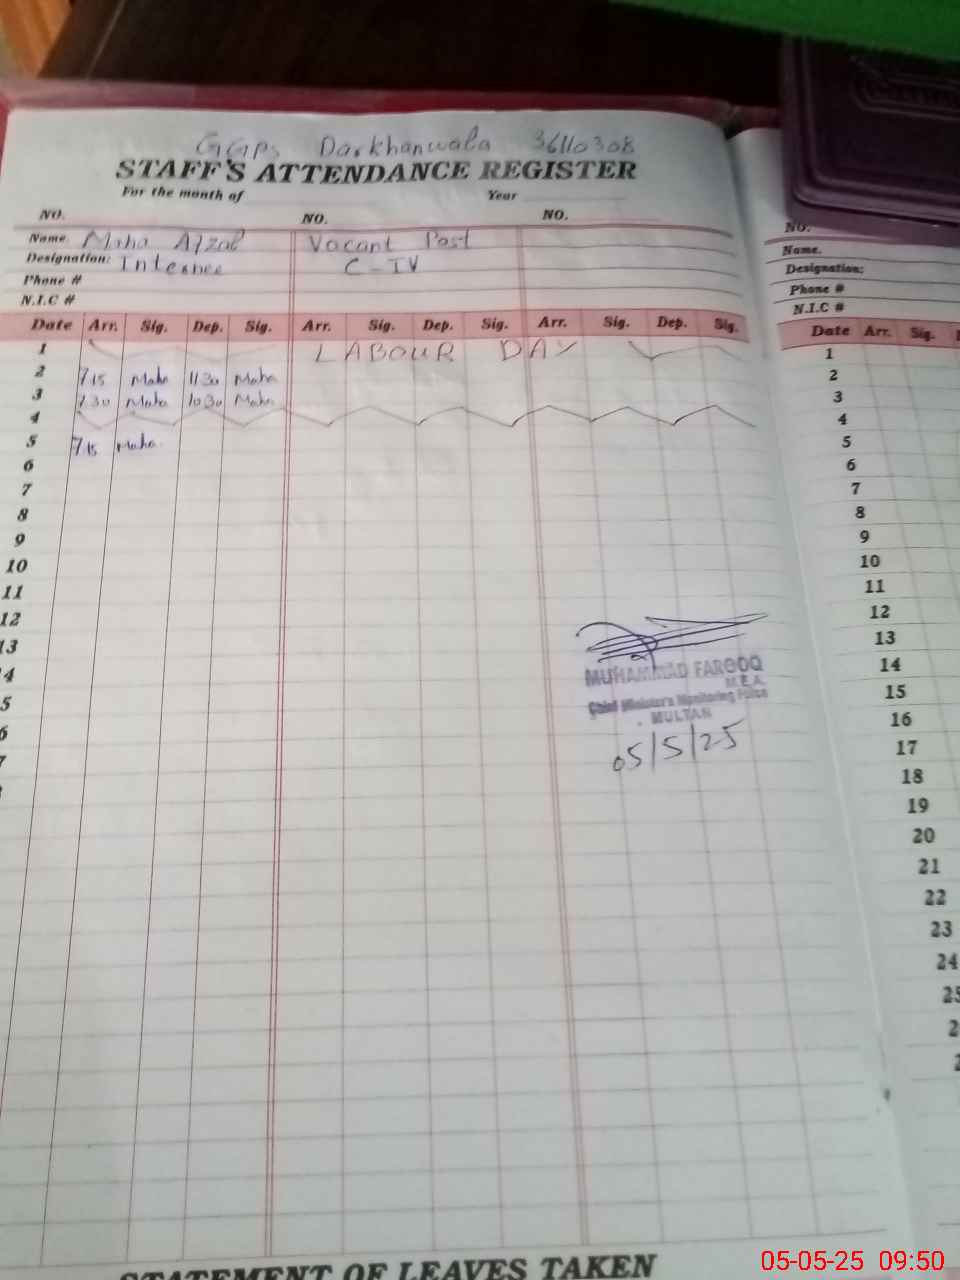 GGPS Darkhanwala 36110308
STAFF'S ATTENDANCE REGISTER
For the month of Year
NO. NO. NO.
Name. Maha Afzal Vacant Post
Designation: Internee C-IV
Phone #
N.I.C #
Date Arr. Sig. Dep. Sig. Arr. Sig. Dep. Sig. Arr. Sig. Dep. Sig.
1 LABOUR DAY
2 7 15 Maha 11 30 Maha
3 7 30 Maha 10 30 Maha
4
5 7 15 Maha
6
7
8
9
10
11
12
13
4
5
6
7
MUHAMMAD FAROOQ
M.E.A.
Chief Minister's Monitoring Force
MULTAN
05/5/25
STATEMENT OF LEAVES TAKEN
NO.
Name.
Designation:
Phone #
N.I.C #
Date Arr. Sig.
1
2
3
4
5
6
7
8
9
10
11
12
13
14
15
16
17
18
19
20
21
22
23
24
25
2
05-05-25 09:50